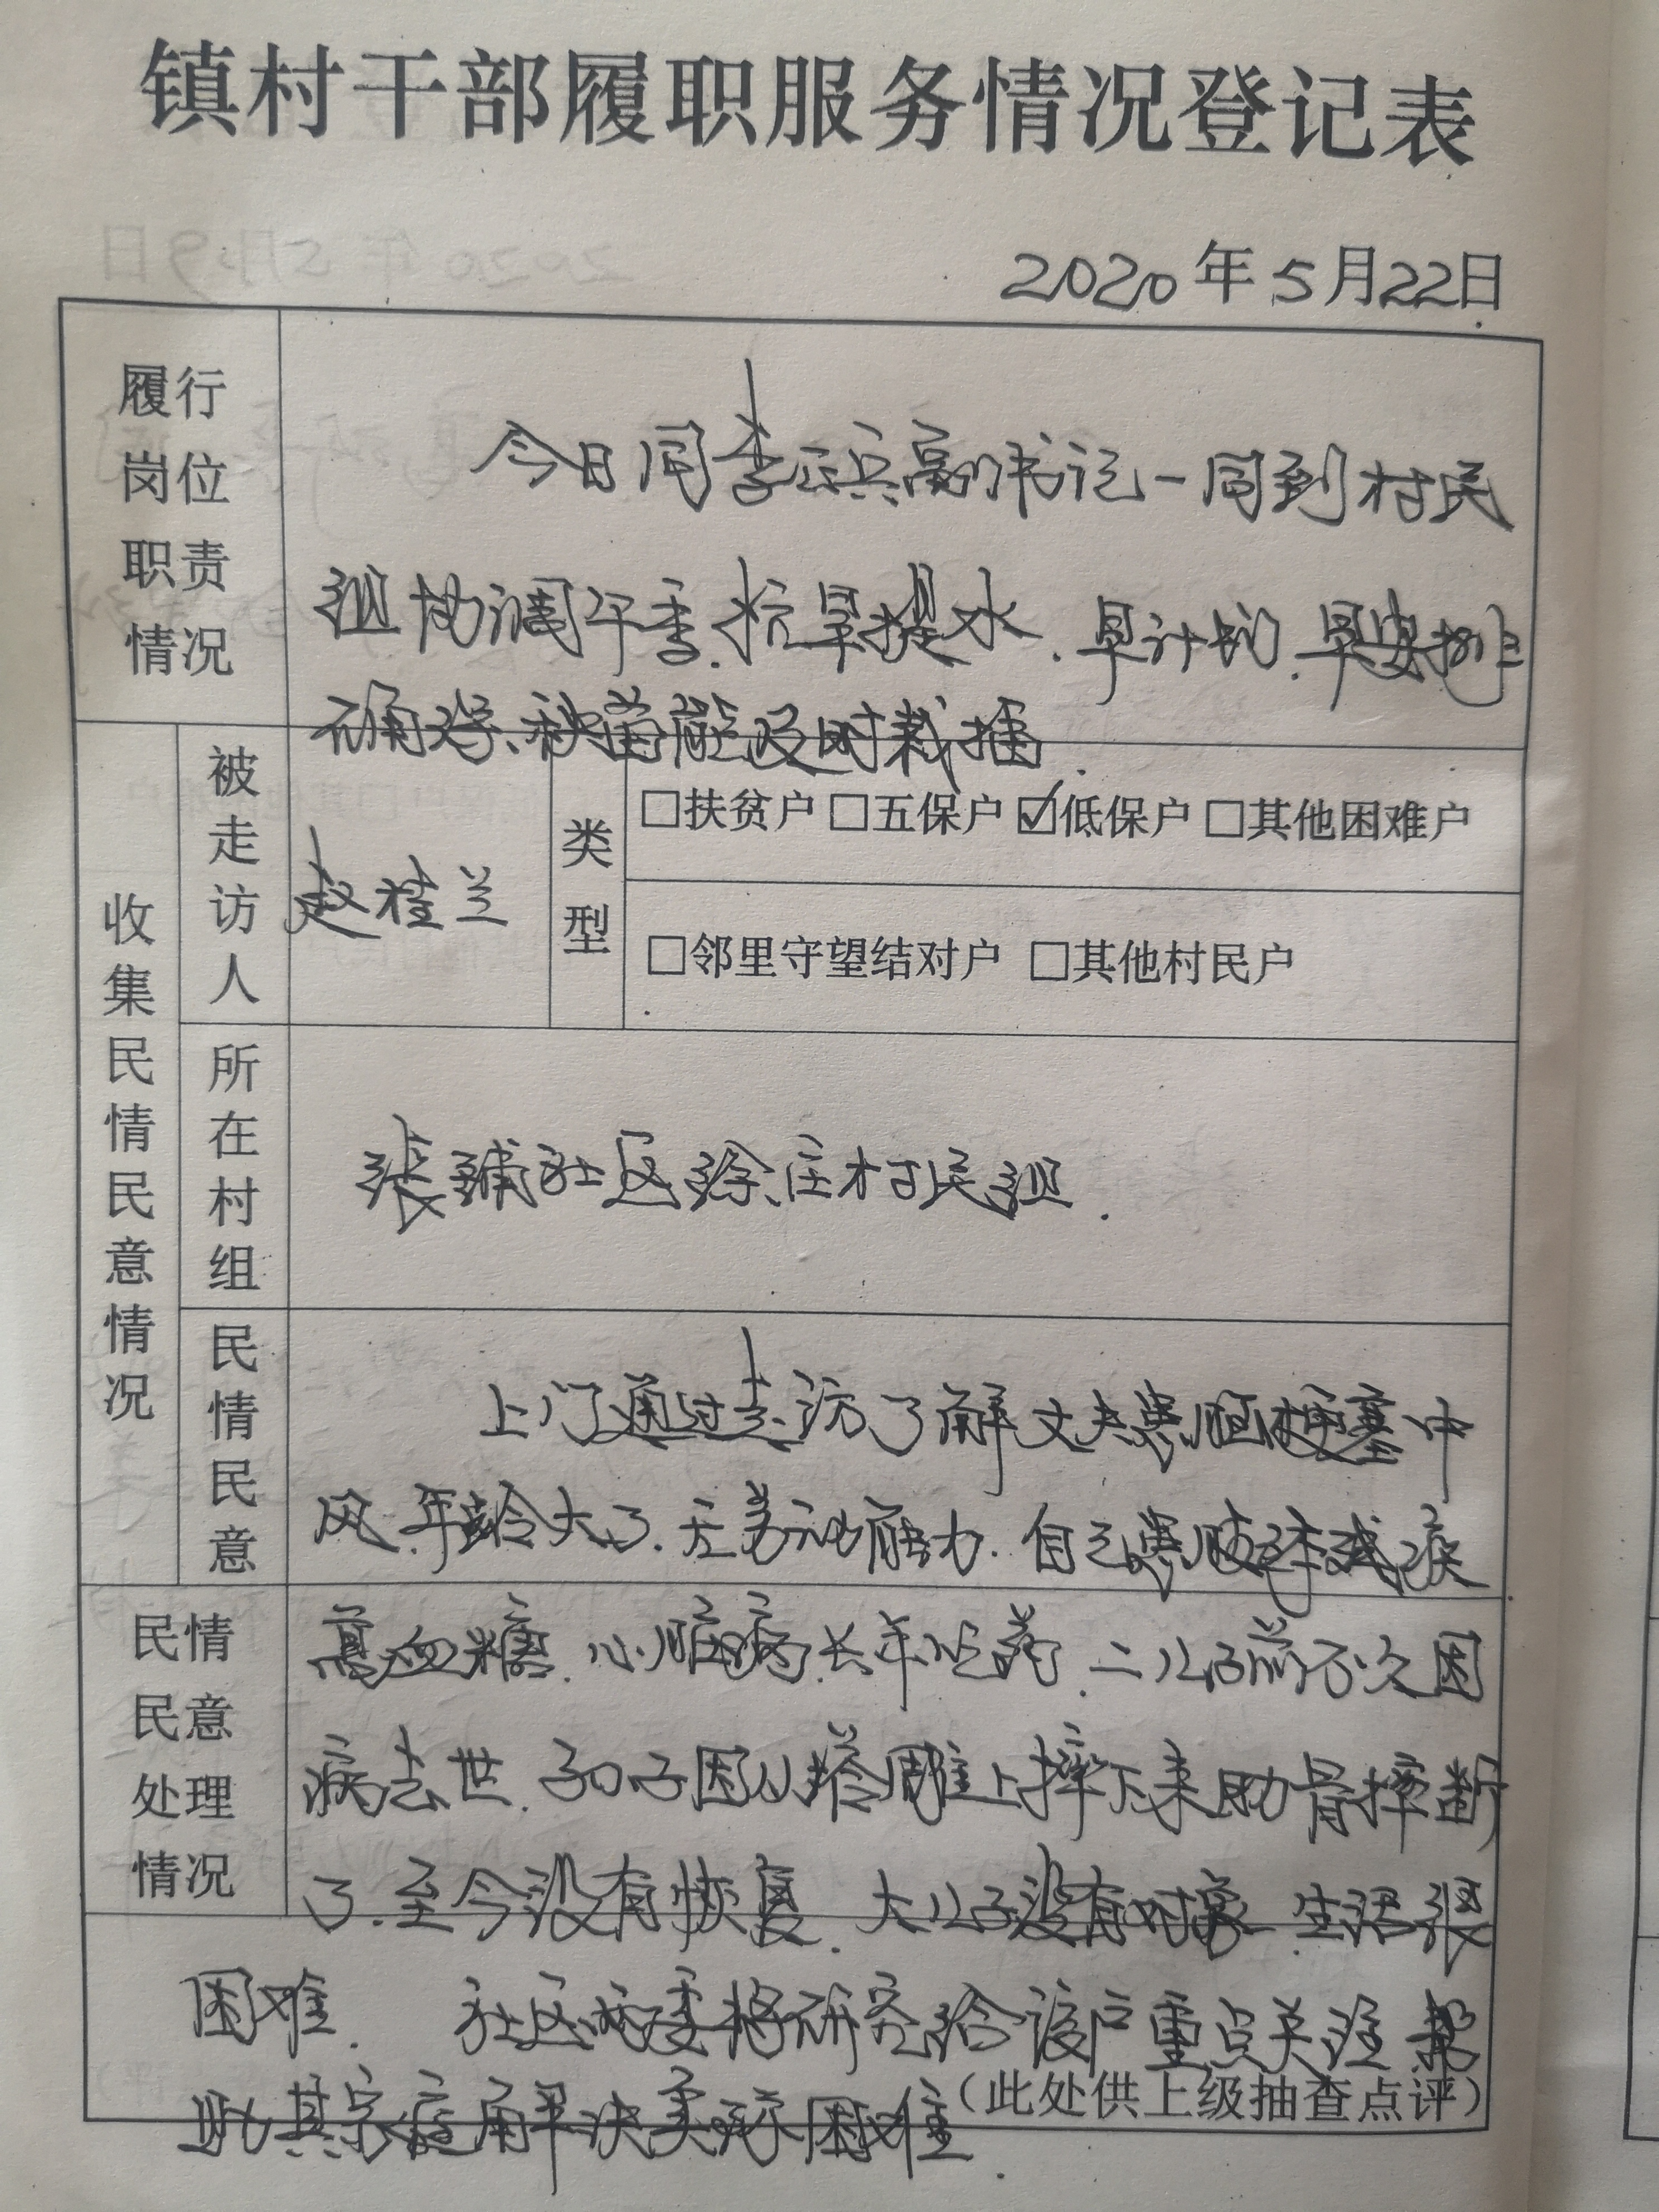 镇村干部履职服务情况登记表
2020年5月22日
履行
岗位
职责
情况
今日同李正兵副书记一同到村民
组协调午季.抗旱提水.早计划.早安排
确保秧苗能及时栽插.
收集民情民意情况
被走访人
赵桂兰
类型
□扶贫户 □五保户 ☑低保户 □其他困难户
□邻里守望结对户 □其他村民户
所在村组
张铺社区徐庄村民组.
民情民意
上门通过走访了解丈夫患脑梗塞中
风.年龄大了.无劳动能力.自己患肢体残疾
民情
民意
处理
情况
高血糖.心脏病.长年吃药.二儿子前不久因
病去世.子因从上摔下来肋骨摔断
了.至今没有恢复.大儿子没有对象.生活很
困难. 社区两委将研究给该户重点关注帮
助其家庭解决实际困难.
(此处供上级抽查点评)